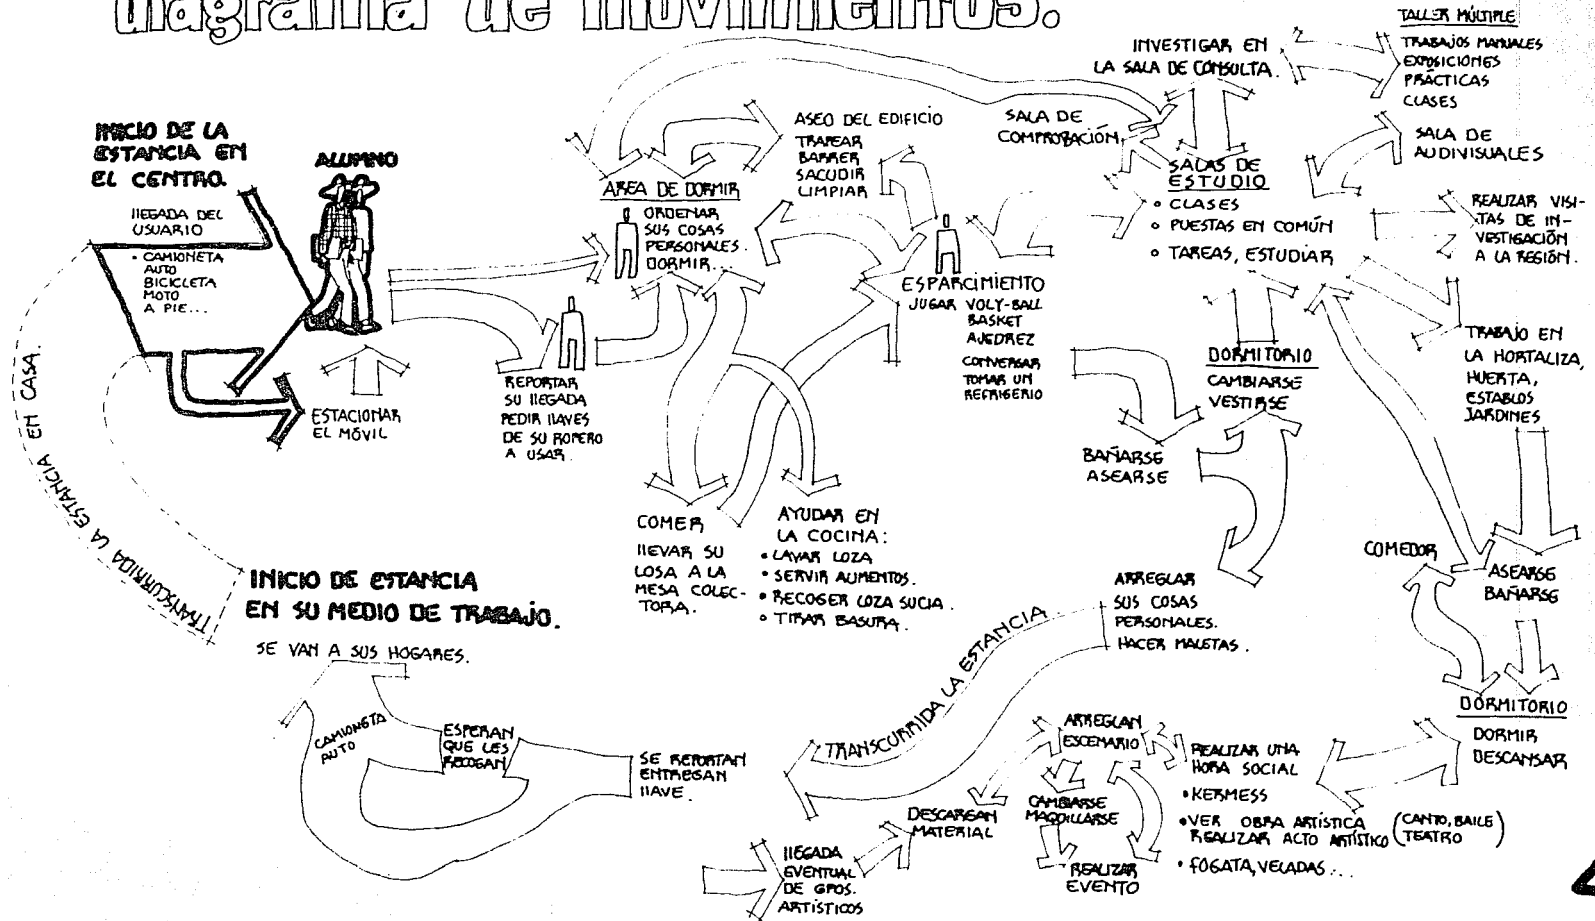 diagrama de movimientos.
INICIO DE LA
ESTANCIA EN
EL CENTRO.
llEGADA DEL
USUARIO
• CAMIONETA
AUTO
BICICLETA
MOTO
A PIE...
ALUMNO
ESTACIONAR
EL MÓVIL
REPORTAR
SU llEGADA
PEDIR llAVES
DE SU ROPERO
A USAR.
AREA DE DORMIR
ORDENAR
SUS COSAS
PERSONALES.
DORMIR...
ASEO DEL EDIFICIO
TRAPEAR
BARRER
SACUDIR
LIMPIAR
ESPARCIMIENTO
JUGAR VOLY-BALL
BASKET
AJEDREZ
CONVERSAR
TOMAR UN
REFRIGERIO
COMER
llEVAR SU
LOSA A LA
MESA COLEC-
TORA.
AYUDAR EN
LA COCINA:
• LAVAR LOZA
• SERVIR ALIMENTOS.
• RECOGER LOZA SUCIA.
• TIRAR BASURA.
INVESTIGAR EN
LA SALA DE CONSULTA.
TALLER MÚLTIPLE
TRABAJOS MANUALES
EXPOSICIONES
PRÁCTICAS
CLASES
SALA DE
COMPROBACIÓN
SALA DE
AUDIVISUALES
SALAS DE
ESTUDIO
• CLASES
• PUESTAS EN COMÚN
• TAREAS, ESTUDIAR
REALIZAR VISI-
TAS DE IN-
VESTIGACIÓN
A LA REGIÓN.
TRABAJO EN
LA HORTALIZA,
HUERTA,
ESTABLOS
JARDINES
DORMITORIO
CAMBIARSE
VESTIRSE
BAÑARSE
ASEARSE
COMEDOR
ASEARSE
BAÑARSE
DORMITORIO
DORMIR
DESCANSAR
ARREGLAR
SUS COSAS
PERSONALES.
HACER MALETAS.
TRANSCURRIDA LA ESTANCIA
ARREGLAN
ESCENARIO
REALIZAR UNA
HORA SOCIAL
• KERMESS
• VER OBRA ARTÍSTICA
REALIZAR ACTO ARTÍSTICO (CANTO, BAILE
TEATRO)
• FOGATA, VELADAS...
CAMBIARSE
MAQUILLARSE
REALIZAR
EVENTO
DESCARGAN
MATERIAL
llEGADA
EVENTUAL
DE GPOS.
ARTÍSTICOS
SE REPORTAN
ENTREGAN
llAVE.
ESPERAN
QUE LES
RECOGAN
CAMIONETA
AUTO
INICIO DE ESTANCIA
EN SU MEDIO DE TRABAJO.
SE VAN A SUS HOGARES.
TRANSCURRIDA LA ESTANCIA EN CASA.